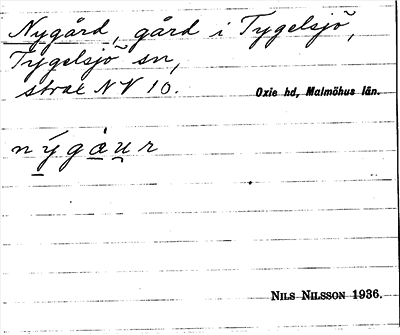 Nygård, gård i Tygelsjö,
Tygelsjö sn,
strax NV 10.
Oxie hd, Malmöhus län.
nýgåur
NILS NILSSON 1936.